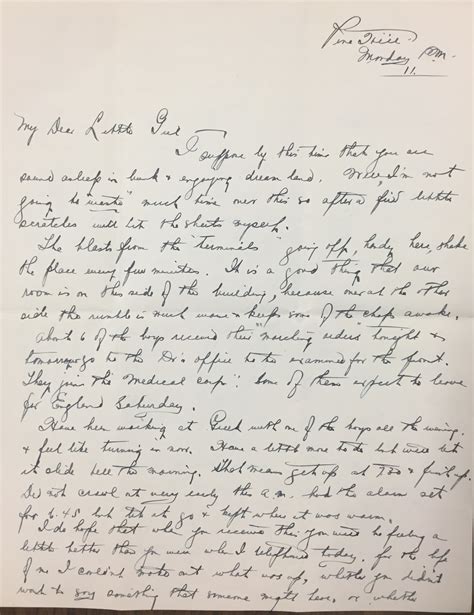 Pine Hill
Monday P.M.
11.
My Dear Little Girl
I suppose by this time that you are
sound asleep in bunk & enjoying dream land. Well, I'm not
going to "waste" much time over this so after a few little
scratches will hit the sheets myself.
The blasts from the "terminals" going off, handy here, shake
the place every few minutes. It is a good thing that our
room is on this side of the building, because over at the other
side the rumble is much worse & keeps some of the chaps awake.
About 6 of the boys received their "marching orders" tonight &
tomorrow go to the Dr's office to be examined for the front.
They join the "Medical corps". Some of them expect to leave
for England Saturday.
Have been working at with one of the boys all the evening
& feel like turning in now. Have a little more to do but will let
it slide till the morning. That means get up at 7.30 & finish up.
Did not crawl out very early this a.m. had the alarm set
for 6.45 but let it go & kept where it was warm.
I do hope that when you receive this you will be feeling a
little better than you were when I telephoned today. For the life
of me I couldn't make out what was up, whether you didn't
want to say something that someone might hear, or whether